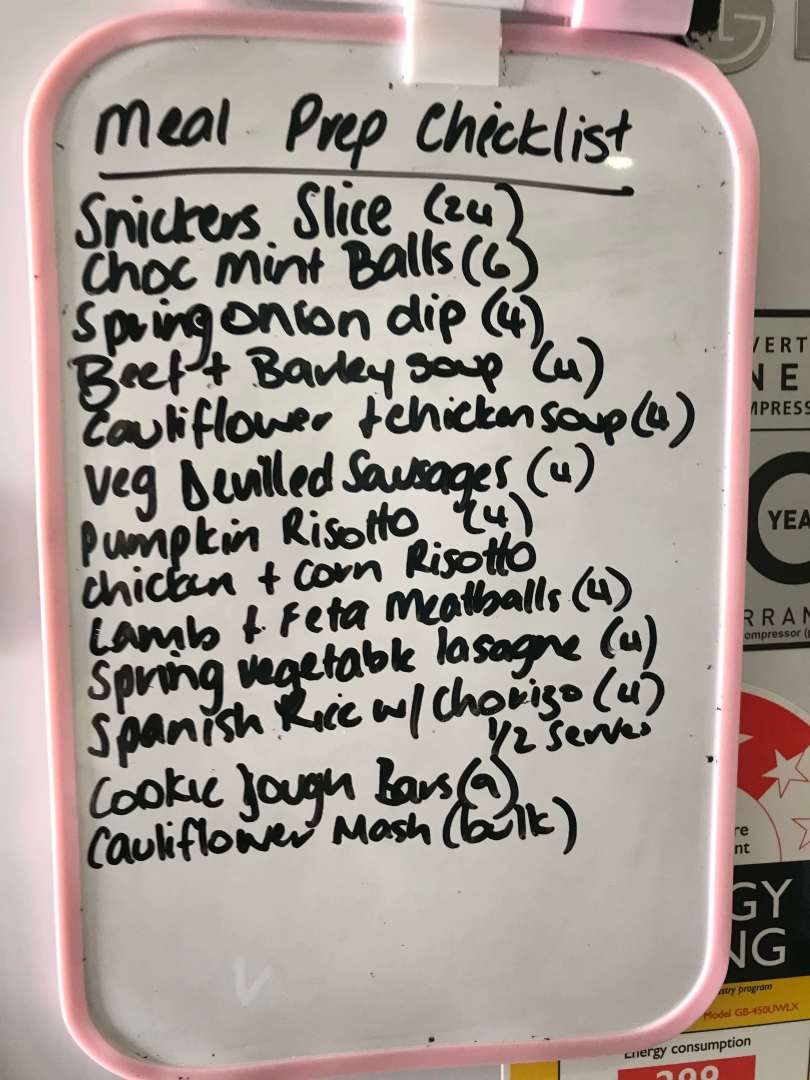 Meal Prep Checklist
Snickers Slice (24)
Choc Mint Balls (6)
Spring onion dip (4)
Beef + Barley soup (4)
Cauliflower + chicken soup (4)
Veg Devilled Sausages (4)
Pumpkin Risotto (4)
Chicken + Corn Risotto
Lamb + Feta Meatballs (4)
Spring vegetable lasagne (4)
Spanish Rice w/ Chorizo (4)
1/2 serves
Cookie Dough Bars (9)
Cauliflower Mash (bulk)
LG
VERT
NE
MPRESS
YEA
RRAN
ompressor (
re
nt
GY
NG
stry program
Model GB-450UWLX
Energy consumption